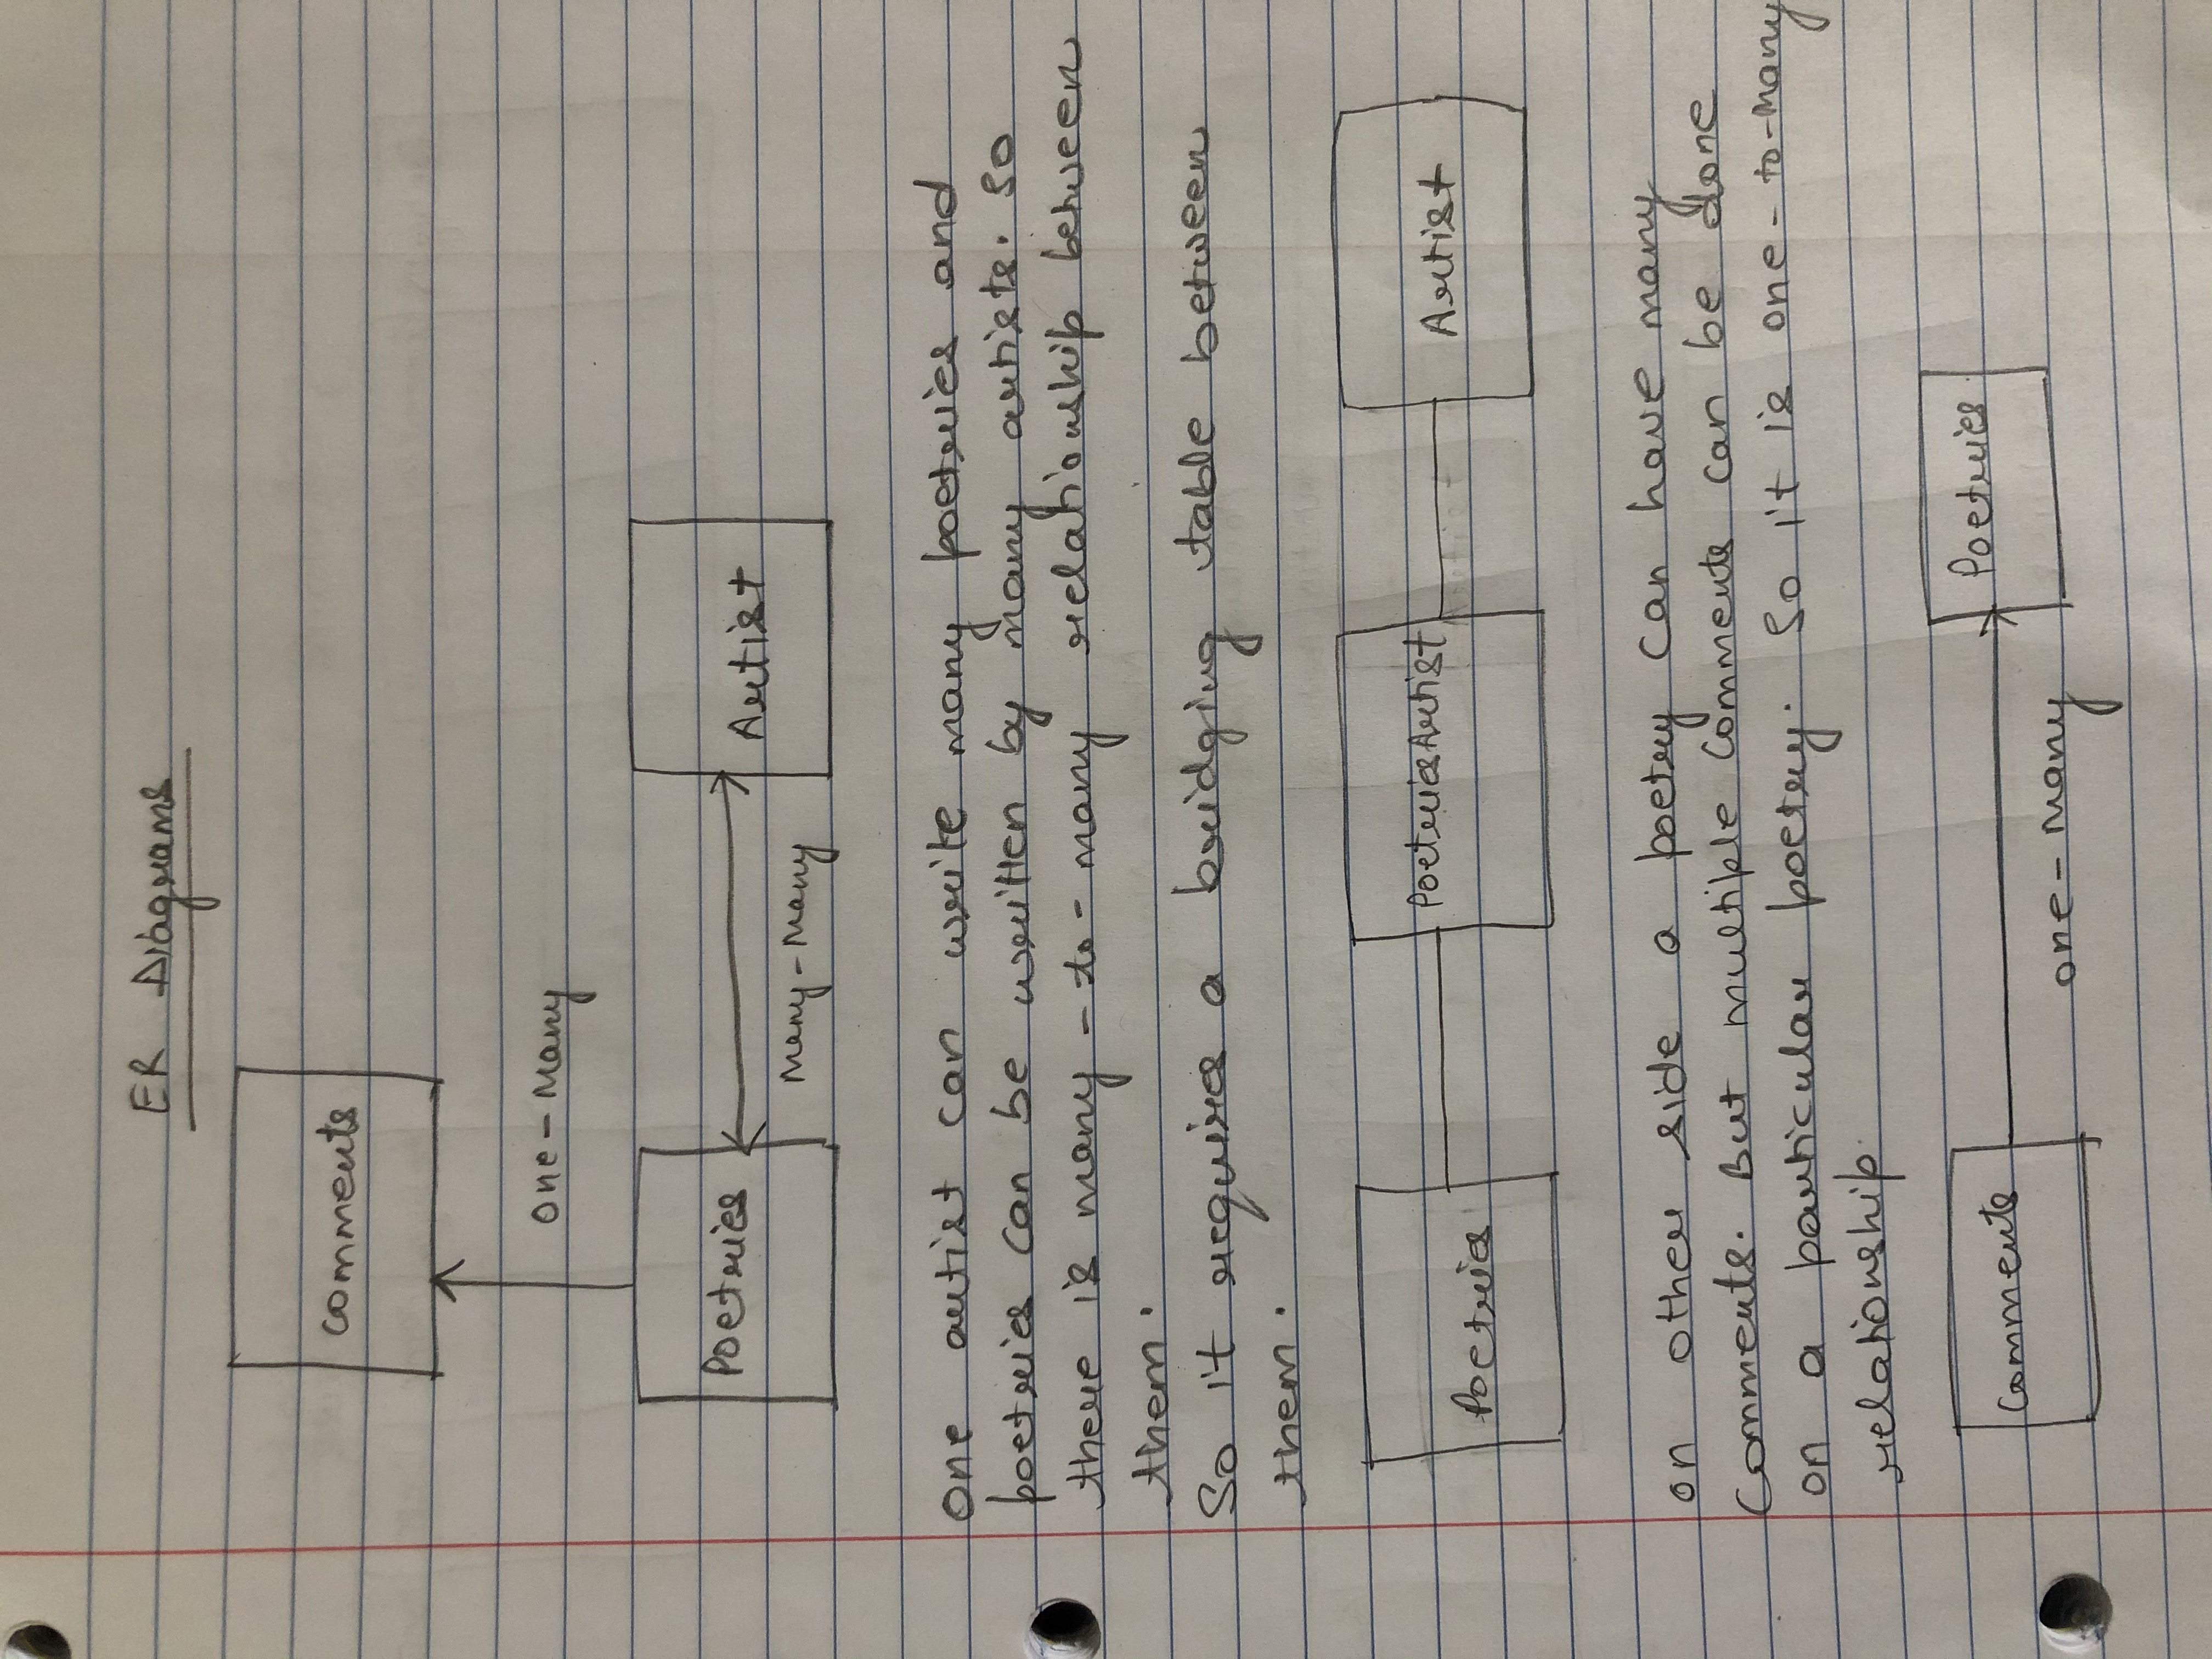 ER Diagrams
Comments
One-Many
Poetries
Artist
Many-Many
One artist can write many poetries and
poetries can be written by many artists. So
there is many-to-many relationship between
them.
So it requires a bridging table between
them.
Poetries
PoetriesArtist
Artist
on other side a poetry can have many
Comments. But multiple Comments can be done
on a particular poetry. So it is one-to-Many
relationship.
Comments
Poetries
one-Many